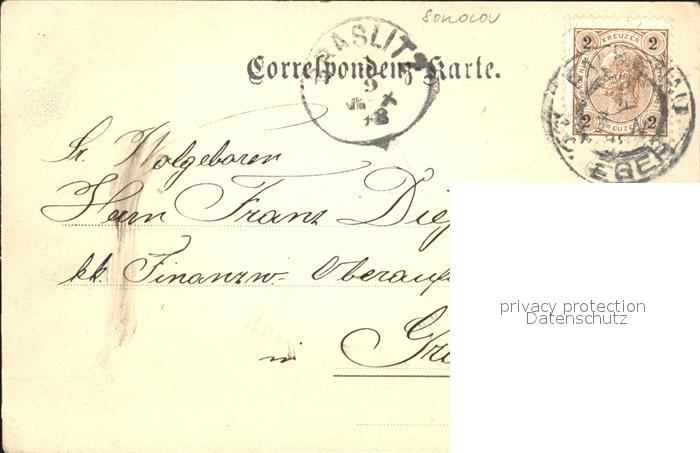 SOKOLOV
Correspondenz-Karte.
GRASLITZ
9
98
2 KREUZER 2
2 KREUZER 2
EGER
Sr. Wolgeboren
Herrn Franz
kk. Finanzw- Oberauf
in Gr
privacy protection
Datenschutz